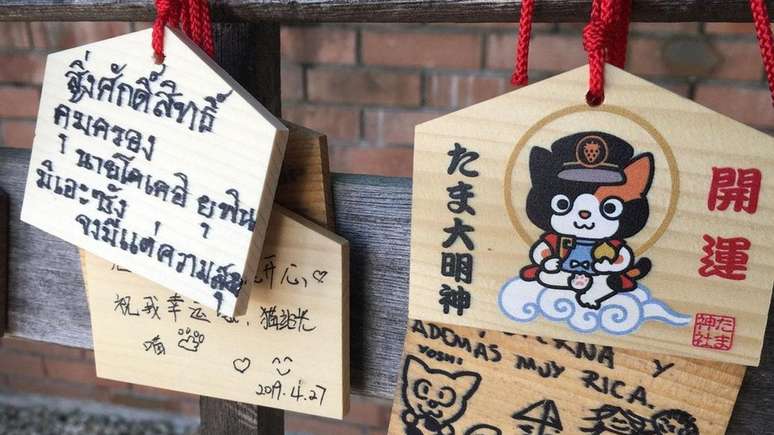 สิ่งศักดิ์สิทธิ์
คุมครอง
นายโคเคอิ
มิเอะซัง
จงมีแต่ความสุข
开心,
祝我幸运
喵
2019.4.27
たま大明神
開運
たま
神社
ERNA Y
ADOMAS MUY RICA.
YOSHI